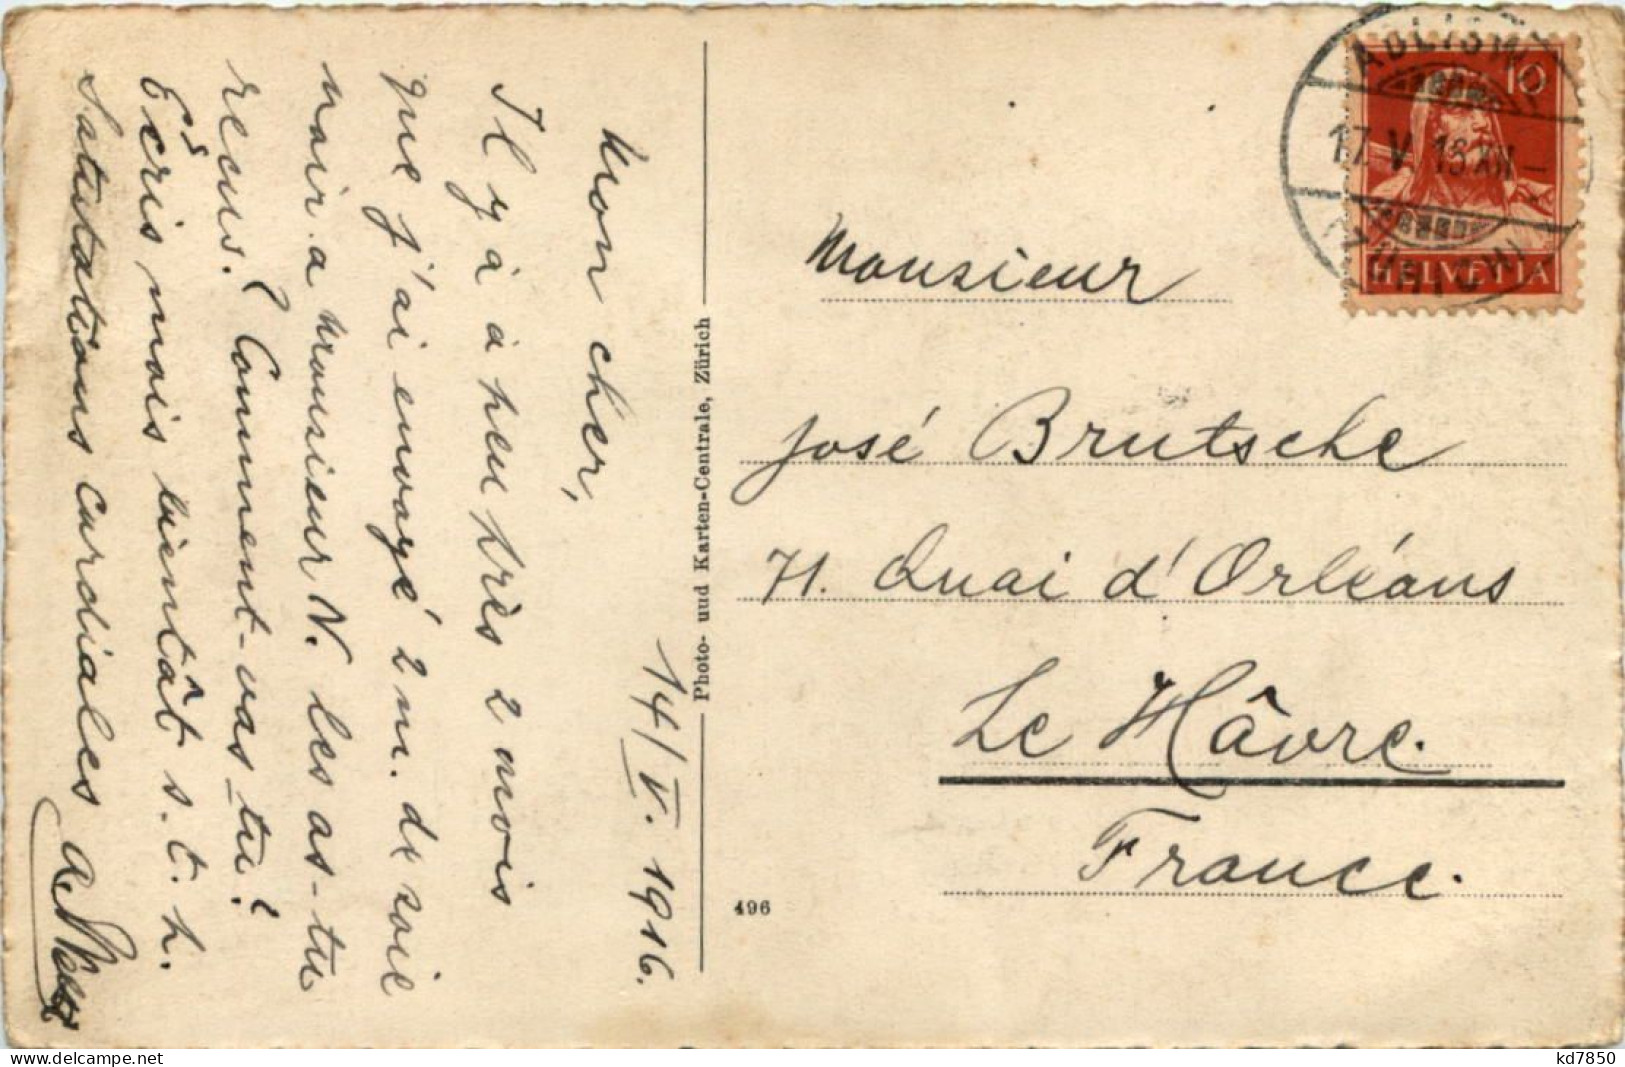 14/V. 1916.
Mon cher,
Il y à à peu près 2 mois
que j'ai envoyé 2 m. de soie
noir a monsieur N. les as-tu
recus. Comment-vas-tu?
Écris mois bientôt s. t. p.
Salutations cardiales
Photo- und Karten-Centrale, Zürich
496
Monsieur
José Brutsche
71. Quai d'Orléans
Le Hâvre.
France.
10
HELVETIA
17. V. 16 XII-
(ZÜRICH)
kd7850